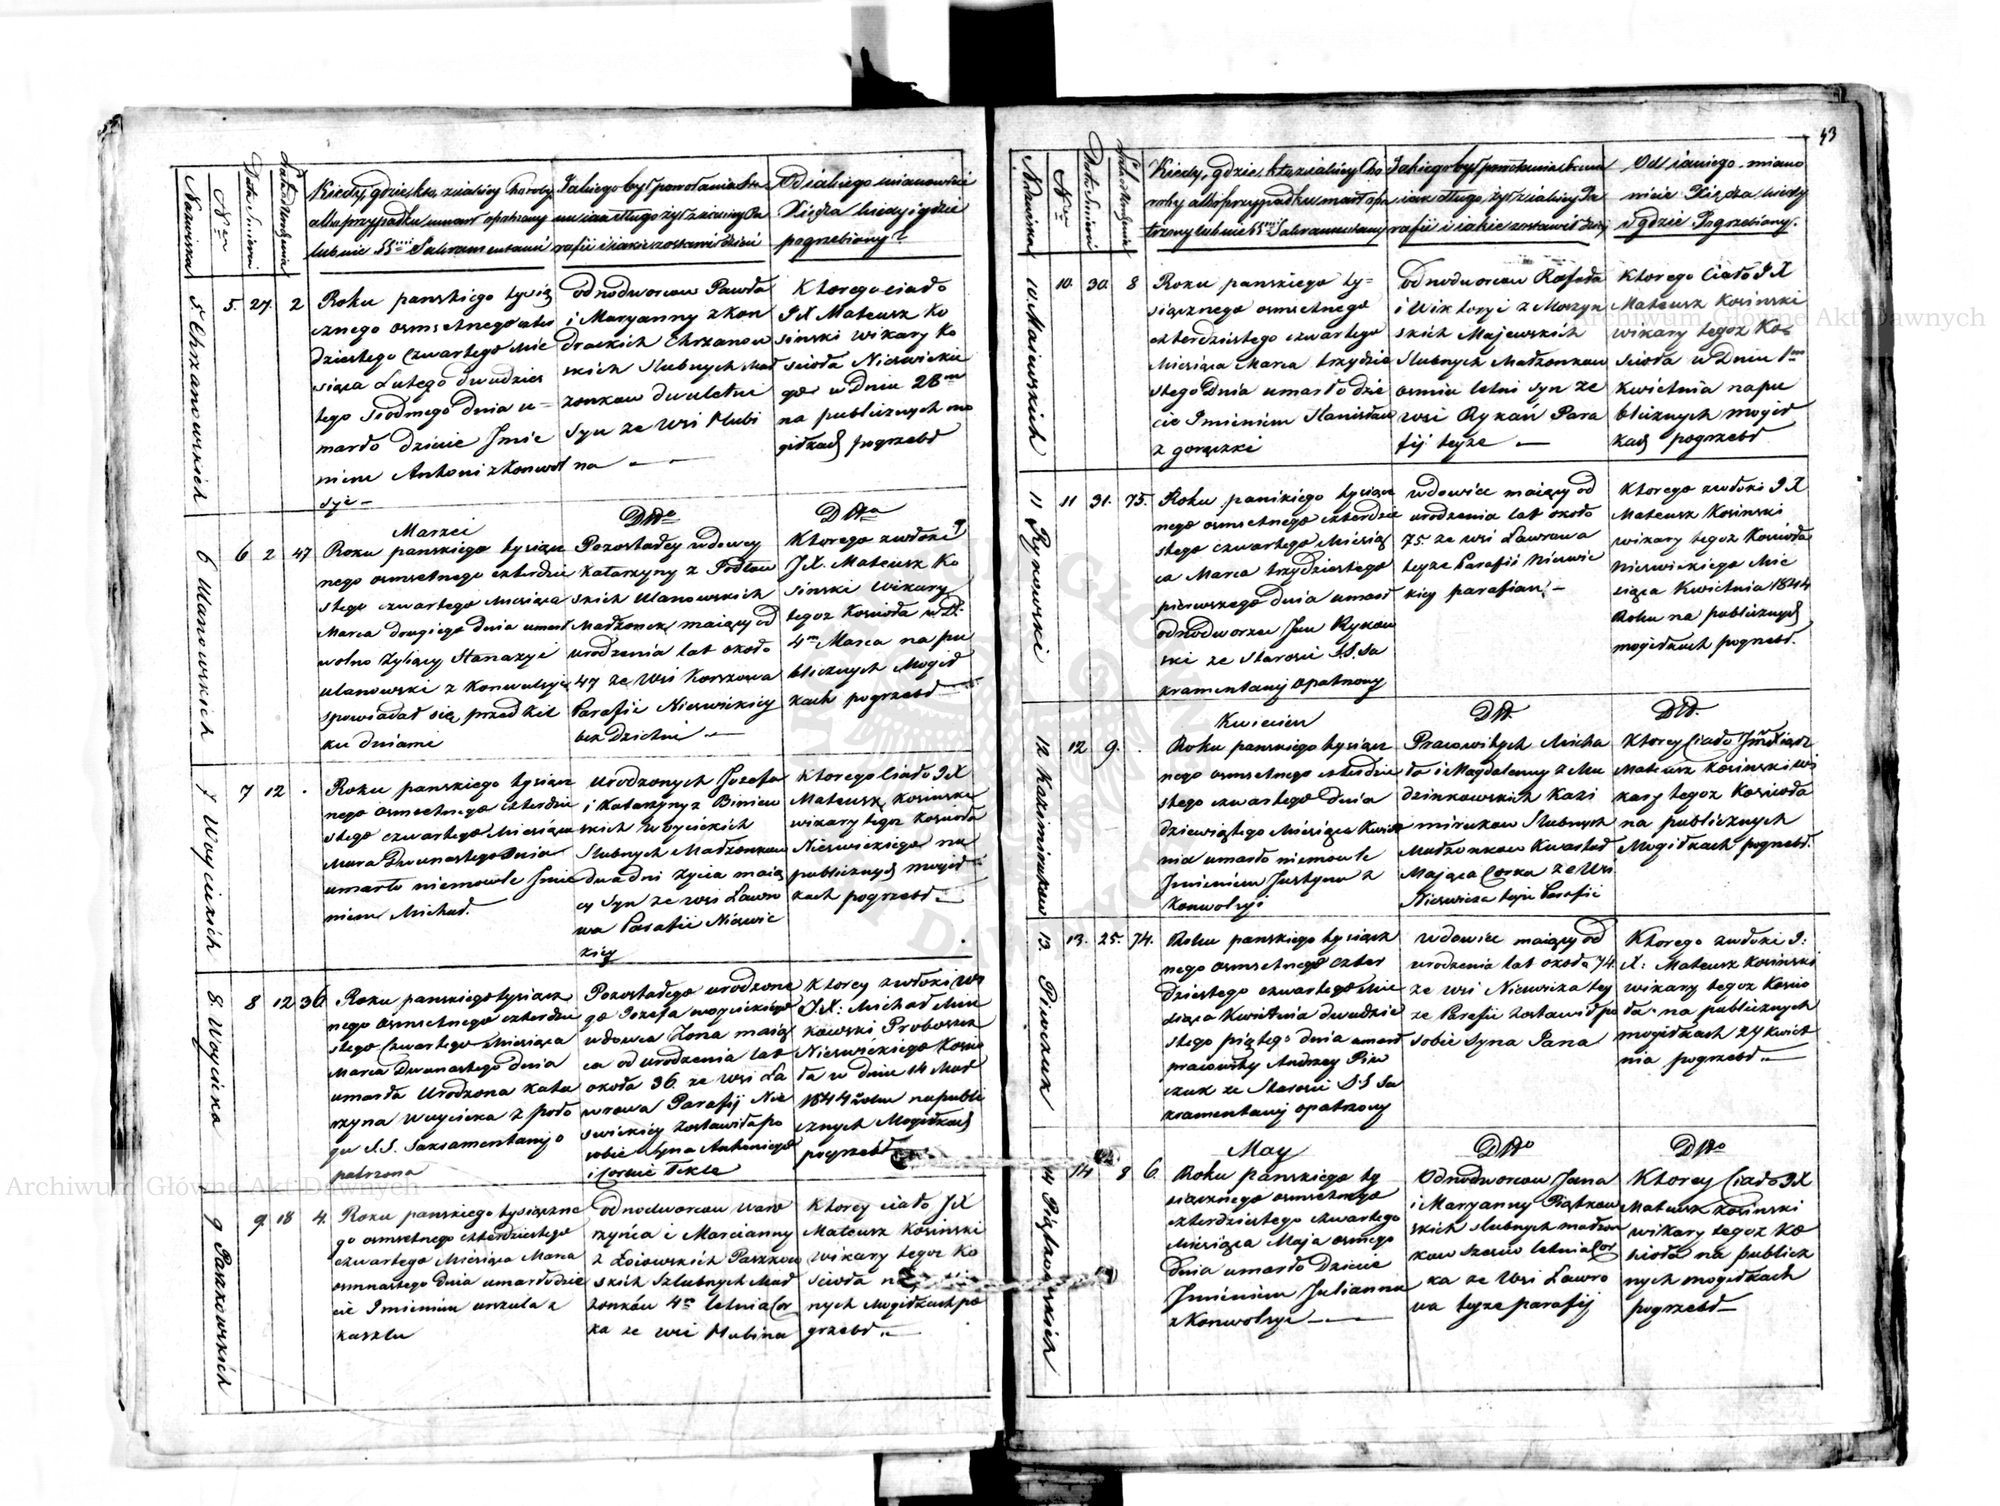 43
Nazwiska
Nro
Kiedy, gdzie, kto, z jakiey choroby
albo przypadku umarł opatrzony
lub nie SS.mi Sakramentami
Jakiego był powołania
iak długo żył z jakiey Pa
rafii i jakie zostawił dzieci
Od jakiego mianowicie
Xiędza kiedy i gdzie
pogrzebiony?
5 Chrzanowskich
5. 27. 2
Roku panskiego tysią
cznego osmsetnego czter
dziestego czwartego Mie
siąca Lutego dwudzies
tego siodmego dnia u=
marło dziecie Imie
niem Antoni z Konwol
syi –
odnodworcow Pawła
i Maryanny z Kon
drackich Chrzanow
skich Slubnych Mał
zonkow dwuletni
Syn ze wsi Hubi
na —
Ktorego ciało
JX Mateusz Ko
sinski wikary Ko
scioła Nieswickie
go w Dniu 28m
na publicznych mo
giłkach pogrzebł
6 Ulanowskich
6 2 47
Marzec
Roku panskiego tysiącz
nego osmsetnego czterdzie
stego czwartego Miesiąca
Marca drugiego dnia umarł
wolno żyiący Atanazye
Ulanowski z Konwulsyi
spowiadał się przed kil
ku dniami
Dtto
Pozostałey wdowey
Katarzyny z Podłow
skich Ulanowskich
Małżonek maiący od
urodzenia lat około
47 ze wsi Korszowa
Parafii Nieswickiey
bez dzietni —
Dtto
Ktorego zwłoki
J.X. Mateusz Ko
sinski Wikary
tegoz Kościoła w D:
4m Marca na pu
blicznych Mogił
kach pogrzebł —
7 Woycickich
7 12 .
Roku panskiego tysiącz
nego osmsetnego czterdzie
stego czwartego Miesiąca
Marca Dwunastego Dnia
umarło niemowle Imie
niem Michał.
Urodzonych Jozefa
i Katarzyny z Biniew
skich Woycickich
Slubnych Małżonkow
dwa dni życia maią
cy Syn ze wsi Ławro
wa Parafii Nieswic
kiey
Ktorego Ciało JX
Mateusz Kosinski
wikary tegoz Koscioła
Nieswickiego na
publicznych mogił
kach pogrzebł —
8. Woycicka
8 12 36
Roku panskiego tysiącz
nego osmsetnego czterdzie
stego Czwartego Miesiąca
Marca Dwunastego dnia
umarła Urodzona Kata
rzyna Woycicka z poło
gu S.S. Sakramentami o
patrzona
Pozostałego urodzone
go Jozefa Woycickiego
wdowca Zona maią
ca od urodzenia lat
około 36 ze wsi Ła
wrowa Parafij Nie
swickiey zostawiła po
sobie Syna Antoniego
i corkie Tekle
Ktorey zwłoki
J.X: Michał
Proboszcz
Nieswickiego Koscio
ła w dniu 14 Mar
1844 roku na publi
cznych Mogiłkach
pogrzebł
9 Paszkowskich
9. 18 4.
Roku panskiego tysiączne
go osmsetnego czterdziestego
czwartego Miesiąca Marca
osmnastego dnia umarło dzie
cie Imieniem Urszula z
kaszlu
odnodworcow Waw
rzyńca i Marcianny
z Łoiowskich Paszkow
skich Szlubnych Mał
żonków 4ro letnia Cor
ka ze wsi Hubina
Ktorey ciało JX
Mateusz Kosinski
Wikary tegoz Ko
scioła
nych Mogiłkach po
grzebł —
Nazwiska
Nro
Kiedy, gdzie, kto, z jakiey Cho
roby albo przypadku umarł opa
trzony lub nie SS.mi Sakramentamy
Jakiego był powołania
iak długo żył z jakiey Pa
rafii i jakie zostawił dzieci
Od jakiego miano
wicie Xiędza kiedy
i gdzie Pogrzebiony.
10 Maiewskich
10. 30. 8
Roku panskiego ty=
siącznego osmsetnego
czterdziestego czwartego
Miesiąca Marca trzydzie
stego Dnia umarło dzie
cie Imieniem Stanisław
z gorączki
odnodworcow Rafała
i Wiktoryi z Moszyn
skich Majewskich
Slubnych Małżonkow
osmio letni syn ze
wsi Rykań Para
fij teyze —
Ktorego Ciało JX
Mateusz Kosinski
wikary tegoz Ko
scioła w Dniu 1m
Kwietnia na pu
blicznych mogił
kach pogrzebł
11 Rykowski
11 31. 75.
Roku panskiego tysiącz
nego osmsetnego czterdzie
stego czwartego Miesią
ca Marca trzydziestego
pierwszego dnia umarł
odnodworzec Jan Rykow
ski ze Starosci S.S. Sa
kramentamy opatrzony
wdowiec maiący od
urodzenia lat około
75. ze wsi Ławrowa
teyze Parafii Nieswic
kiey parafian. –
Ktorego zwłoki JX
Mateusz Kosinski
wikary tegoz Kościoła
Nieswickiego Mie
siąca Kwietnia 1844
Roku na publicznych
mogiłkach pogrzebł.
12 Kazimirukow
12 9. .
Kwiecien
Roku panskiego tysiącz
nego osmsetnego czterdzie
stego czwartego Dnia
dziewiątego Miesiąca Kwiet
nia umarło niemowle
Imieniem Justyna z
Konwolsyi
Dtto.
Pracowitych Micha
ła i Magdaleny z Mu
dzinkowskich Kazi
mirukow Slubnych
Małżonkow Kwartał
Maiąca Corka ze Wsi
Nieswicza teyże Parafii
Dtto.
Ktorey Ciało
Mateusz Kosinski wi
kary tegoz Koscioła
na publicznych
Mogiłkach pogrzebł.
13. Piwczuk
13. 25. 74.
Roku panskiego tysiącz
nego osmsetnego czter
dziestego czwartego Mie
siąca Kwietnia dwudzie
stego piątego dnia umarł
pracowity Andrzey Piw
czuk ze Starosci S.S Sa
kramentamy opatrzony
wdowiec maiący od
urodzenia lat około 74
ze wsi Nieswicza tey
ze Parafii zostawił po
sobie Syna Jana
Ktorego zwłoki J:
X: Mateusz Kosinski
wikary tegoz Koscio
ła na publicznych
mogiłkach 27 Kwiet
nia pogrzebł. —
14 Piątkowskich
14 8 6.
May
Roku panskiego ty
siącznego osmsetnego
czterdziestego czwartego
Miesiąca Maja osmego
dnia umarło Dziecie
Imieniem Julianna
z Konwolsyi —
Dtto
Odnodworcow Jana
i Maryanny Piątkow
skich slubnych małżon
kow szescio letnia Cor
ka ze Wsi Ławro
wa teyze parafij
Dtto
Ktorey Ciało JX
Mateusz Kosinski
wikary tegoz Ko
scioła na publicz
nych mogiłkach
pogrzebł —
Archiwum Główne Akt Dawnych
Archiwum Główne Akt Dawnych